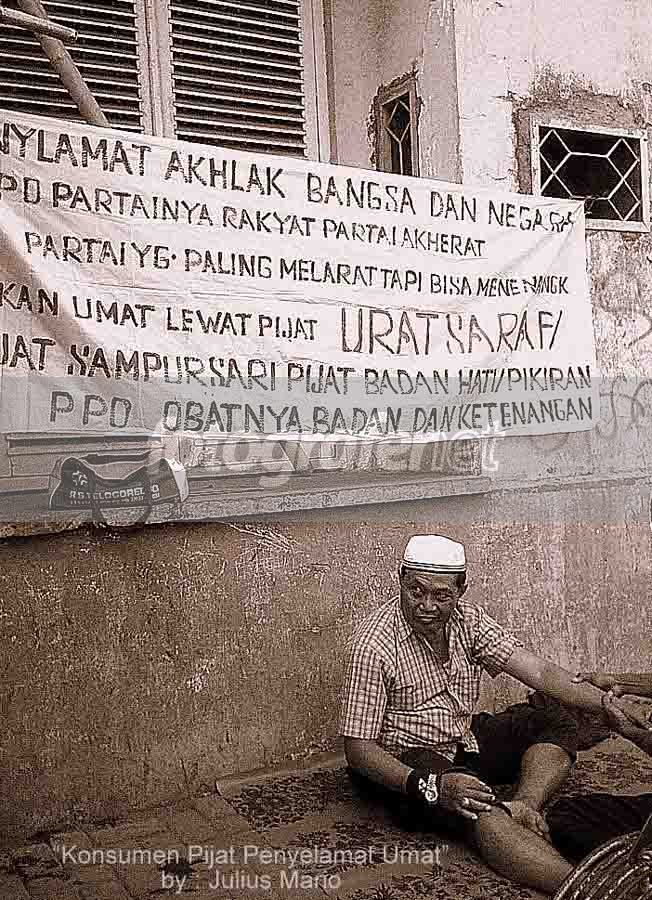 NYLAMAT AKHLAK BANGSA DAN NEGARA
PPD PARTAINYA RAKYAT PARTAI AKHERAT
PARTAI YG. PALING MELARAT TAPI BISA MENENANGK
KAN UMAT LEWAT PIJAT URAT SARAF/
JAT SAMPURSARI PIJAT BADAN HATI/PIKIRAN
PPD OBATNYA BADAN DAN KETENANGAN
fotografer.net
RS TELOGOREJO
"Konsumen Pijat Penyelamat Umat"
by : Julius Mario